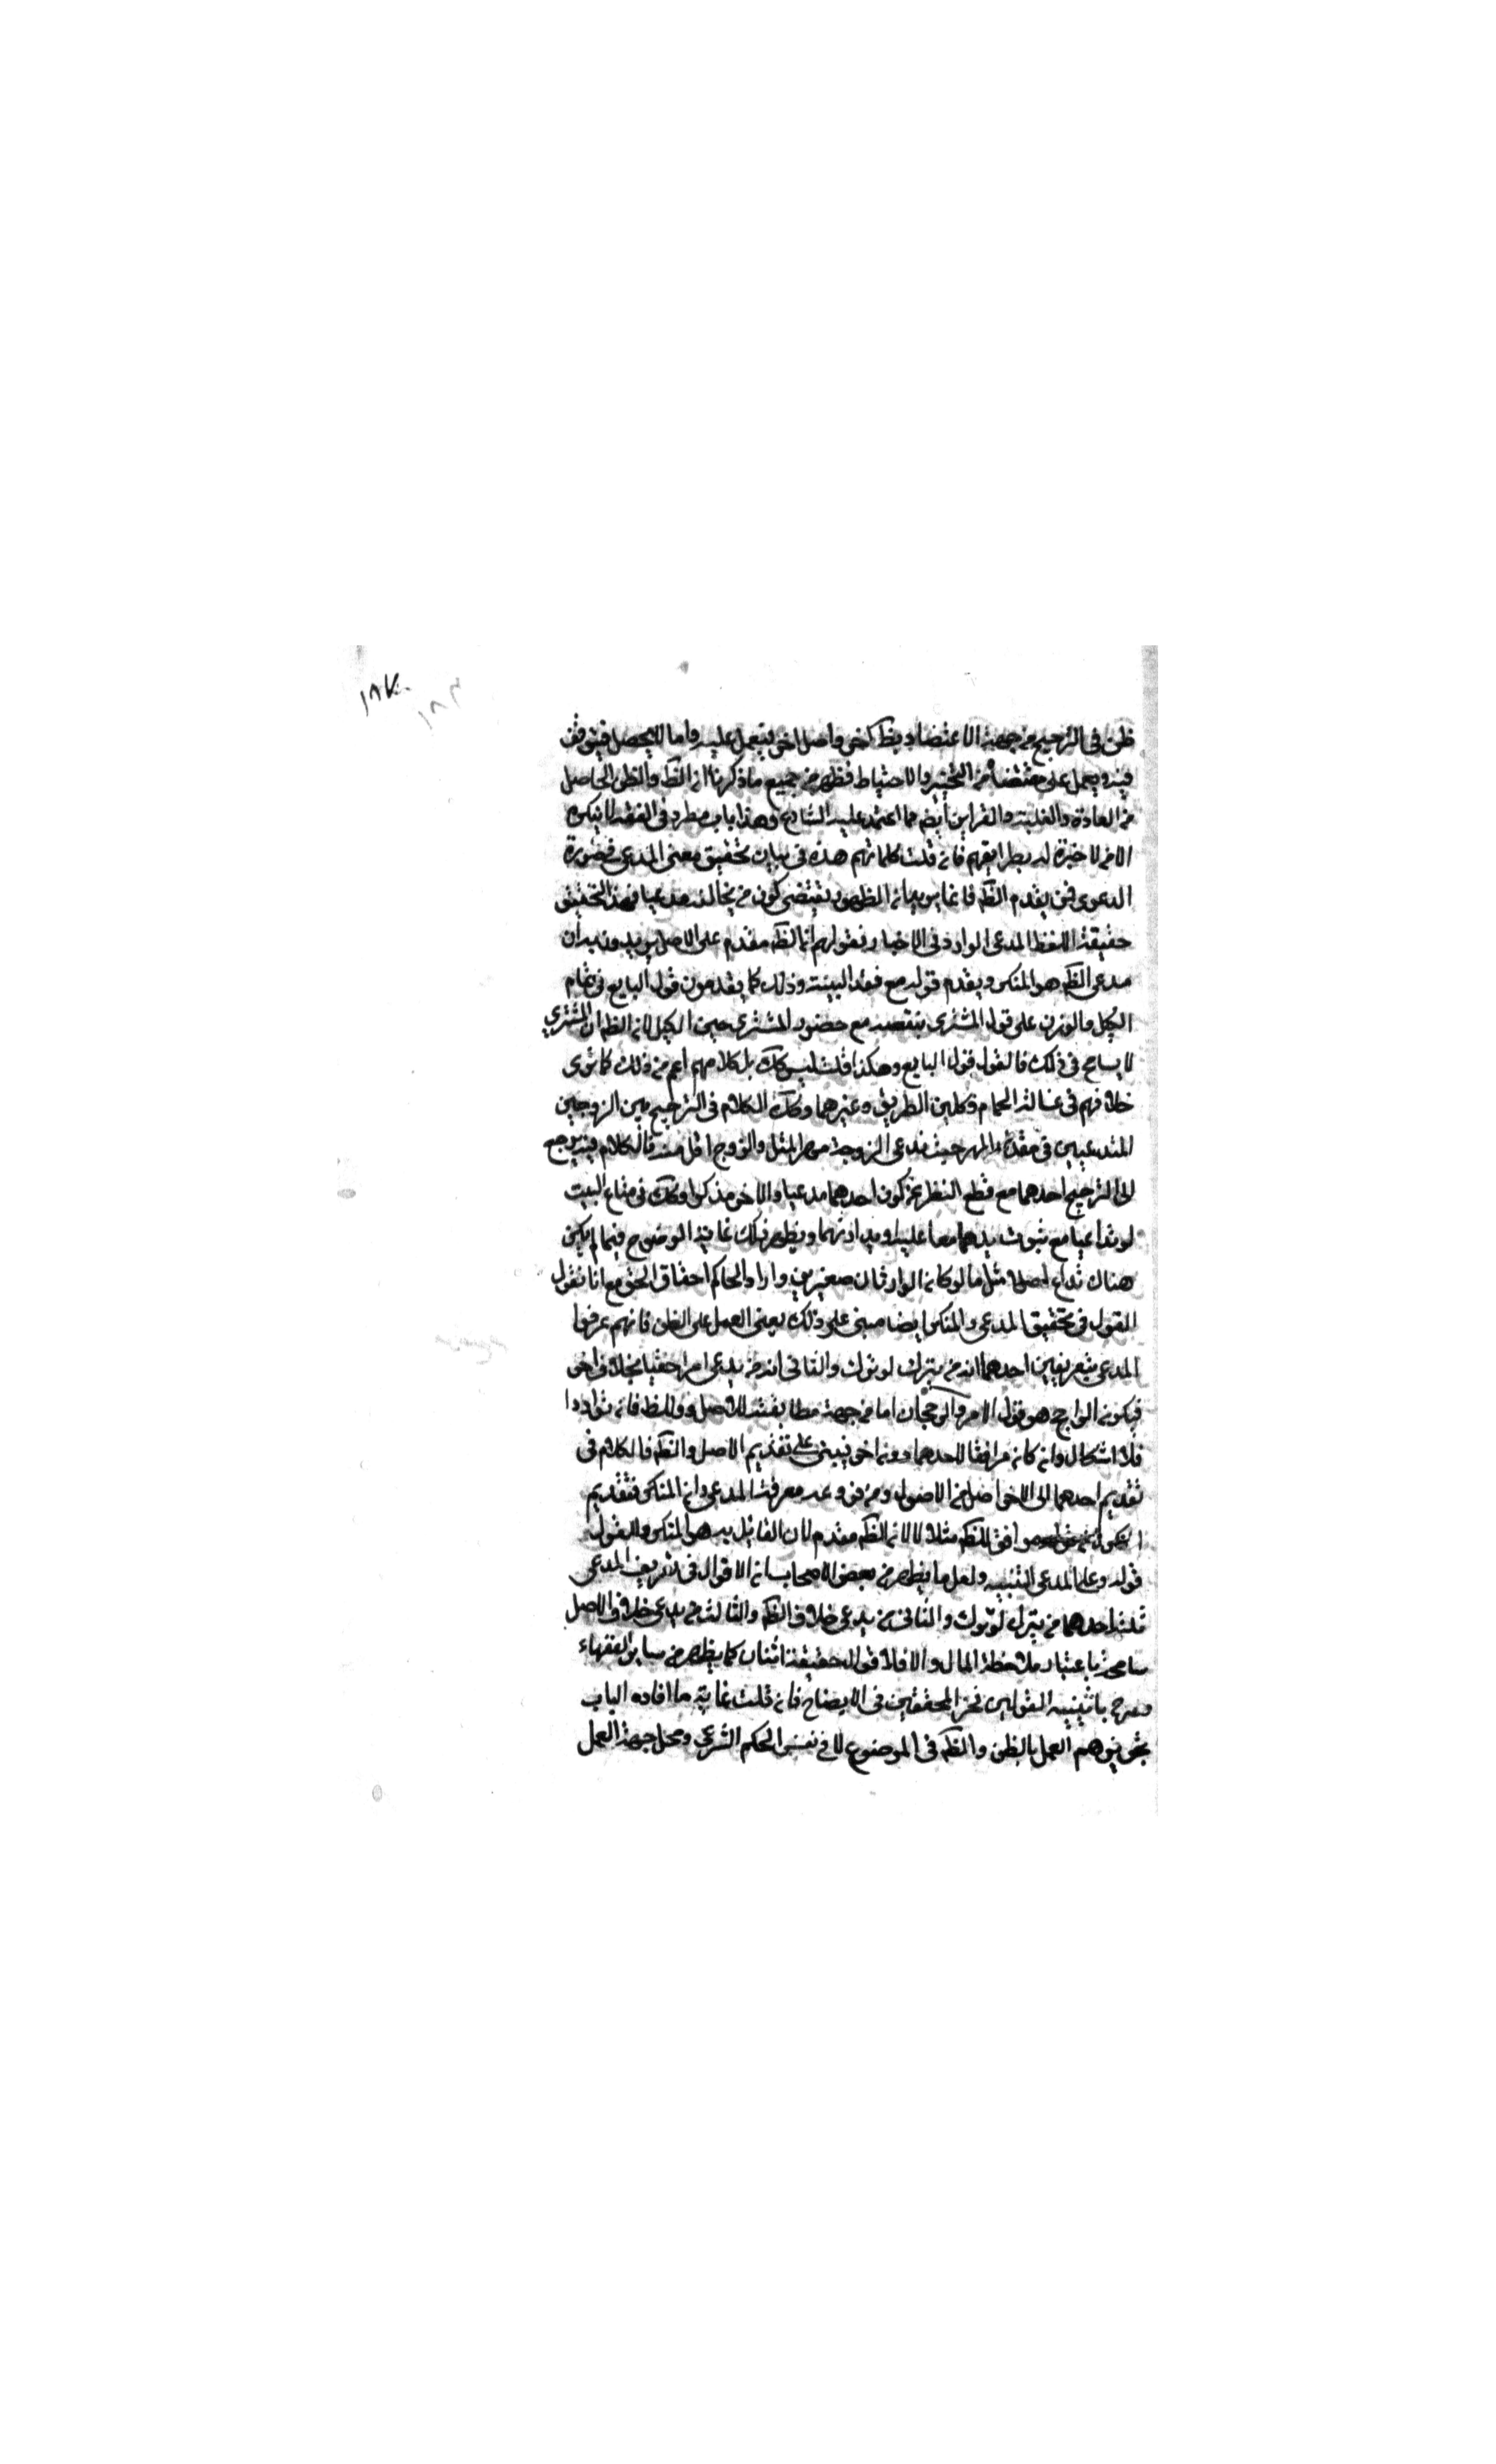 ١٨٧
١٨٦
ظن فى الترجيح من جهة الاعتضاد بظ آخر واصل اخر فيعمل عليه واما لا يحصل فيتوقف
فيه ويعمل على مقتضاه من التخيير والاحتياط فظهر من جميع ما ذكرنا ان الظ والظن الحاصل
من العادة والغلبة والقراين ايضم مما اعتمد عليه الشارع وهذا باب مطرد فى الفقه لا ينكره
الا من لا خبرة له بطرايقهم فان قلت كلماتهم هذه فى بيان تحقيق معنى المدعى فى صورة
الدعوى فمن يقدم الظ فانما يريد ان الظهور يقتضى كون من يخالفه مدعيا فهذا لتحقيق
حقيقة اللفظ المدعى الوارد فى الاخبار فقولهم ان الظ مقدم على الاصل يريدون به ان
مدعى الظ هو المنكر ويقدم قوله مع فقد البينة وذلك كما يقدمون قول البايع فى تمام
الكيل والوزن على قول المشترى بنقصه مع حضور المشترى حين الكيل لان الظ ان المشترى
لا يسامح فى ذلك فالقول قول البايع وهكذا قلت ليس كك بل كلامهم اعم من ذلك كما ترى
خلافهم فى غسالة الحمام وطين الطريق وغيرهما وكك الكلام فى الترجيح بين الزوجين
المتداعيين فى مقدار المهر حيث تدعى الزوجة مهر المثل والزوج اقل منه فالكلام فيه يرجع
الى الترجيح احدهما مع قطع النظر عن كون احدهما مدعيا والاخر منكرا وكك فى متاع البيت
لو تداعيا مع ثبوت يدهما معا عليه او يد وارثهما ويظهر ذلك غاية الوضوح فيما لم يكن
هناك تداع اصلا مثل ما لو كان الوارثان صغيرين واراد الحاكم احقاق الحق مع انا نقول
القول فى تحقيق المدعى والمنكر ايضا مبنى على ذلك يعنى العمل على الظن فانهم عرفوا
المدعى بتعريفين احدهما انه من يترك لو ترك والثانى انه من يدعى امرا خفيا بخلاف اخر
فيكون الراجح هو قول الاخر والرجحان اما من جهة مطابقته للاصل و للظ فان تواردا
فلا اشكال وان كان مرافقا لاحدهما دون اخر فيبنى على تقديم الاصل والظ فالكلام فى
تقديم احدهما الى الاخر اصل من الاصول ومن فروعه معرفة المدعى وان المنكر فتقديم
موافق للظ مثلا لا لان الظ مقدم لان القائل به هو المنكر والقول
قوله وعلى المدعى البينه ولعل ما يظهر من بعض الاصحاب ان الاقوال فى تعريف المدعى
ثلثة احدهما من يترك لو ترك والثانى من يدعى خلاف الظ والثالث من يدعى خلاف الاصل
مسامحة باعتبار ملاحظة المال والا فلا قول حقيقة اثنان كما يظهر من ساير الفقهاء
وصرح باثنينيه القولين فخر المحققين فى الايضاح فان قلت غاية ما افاده الباب
تجويزهم العمل بالظن والظ فى الموضوع لا فى نفس الحكم الشرعى ومحل جهة العمل